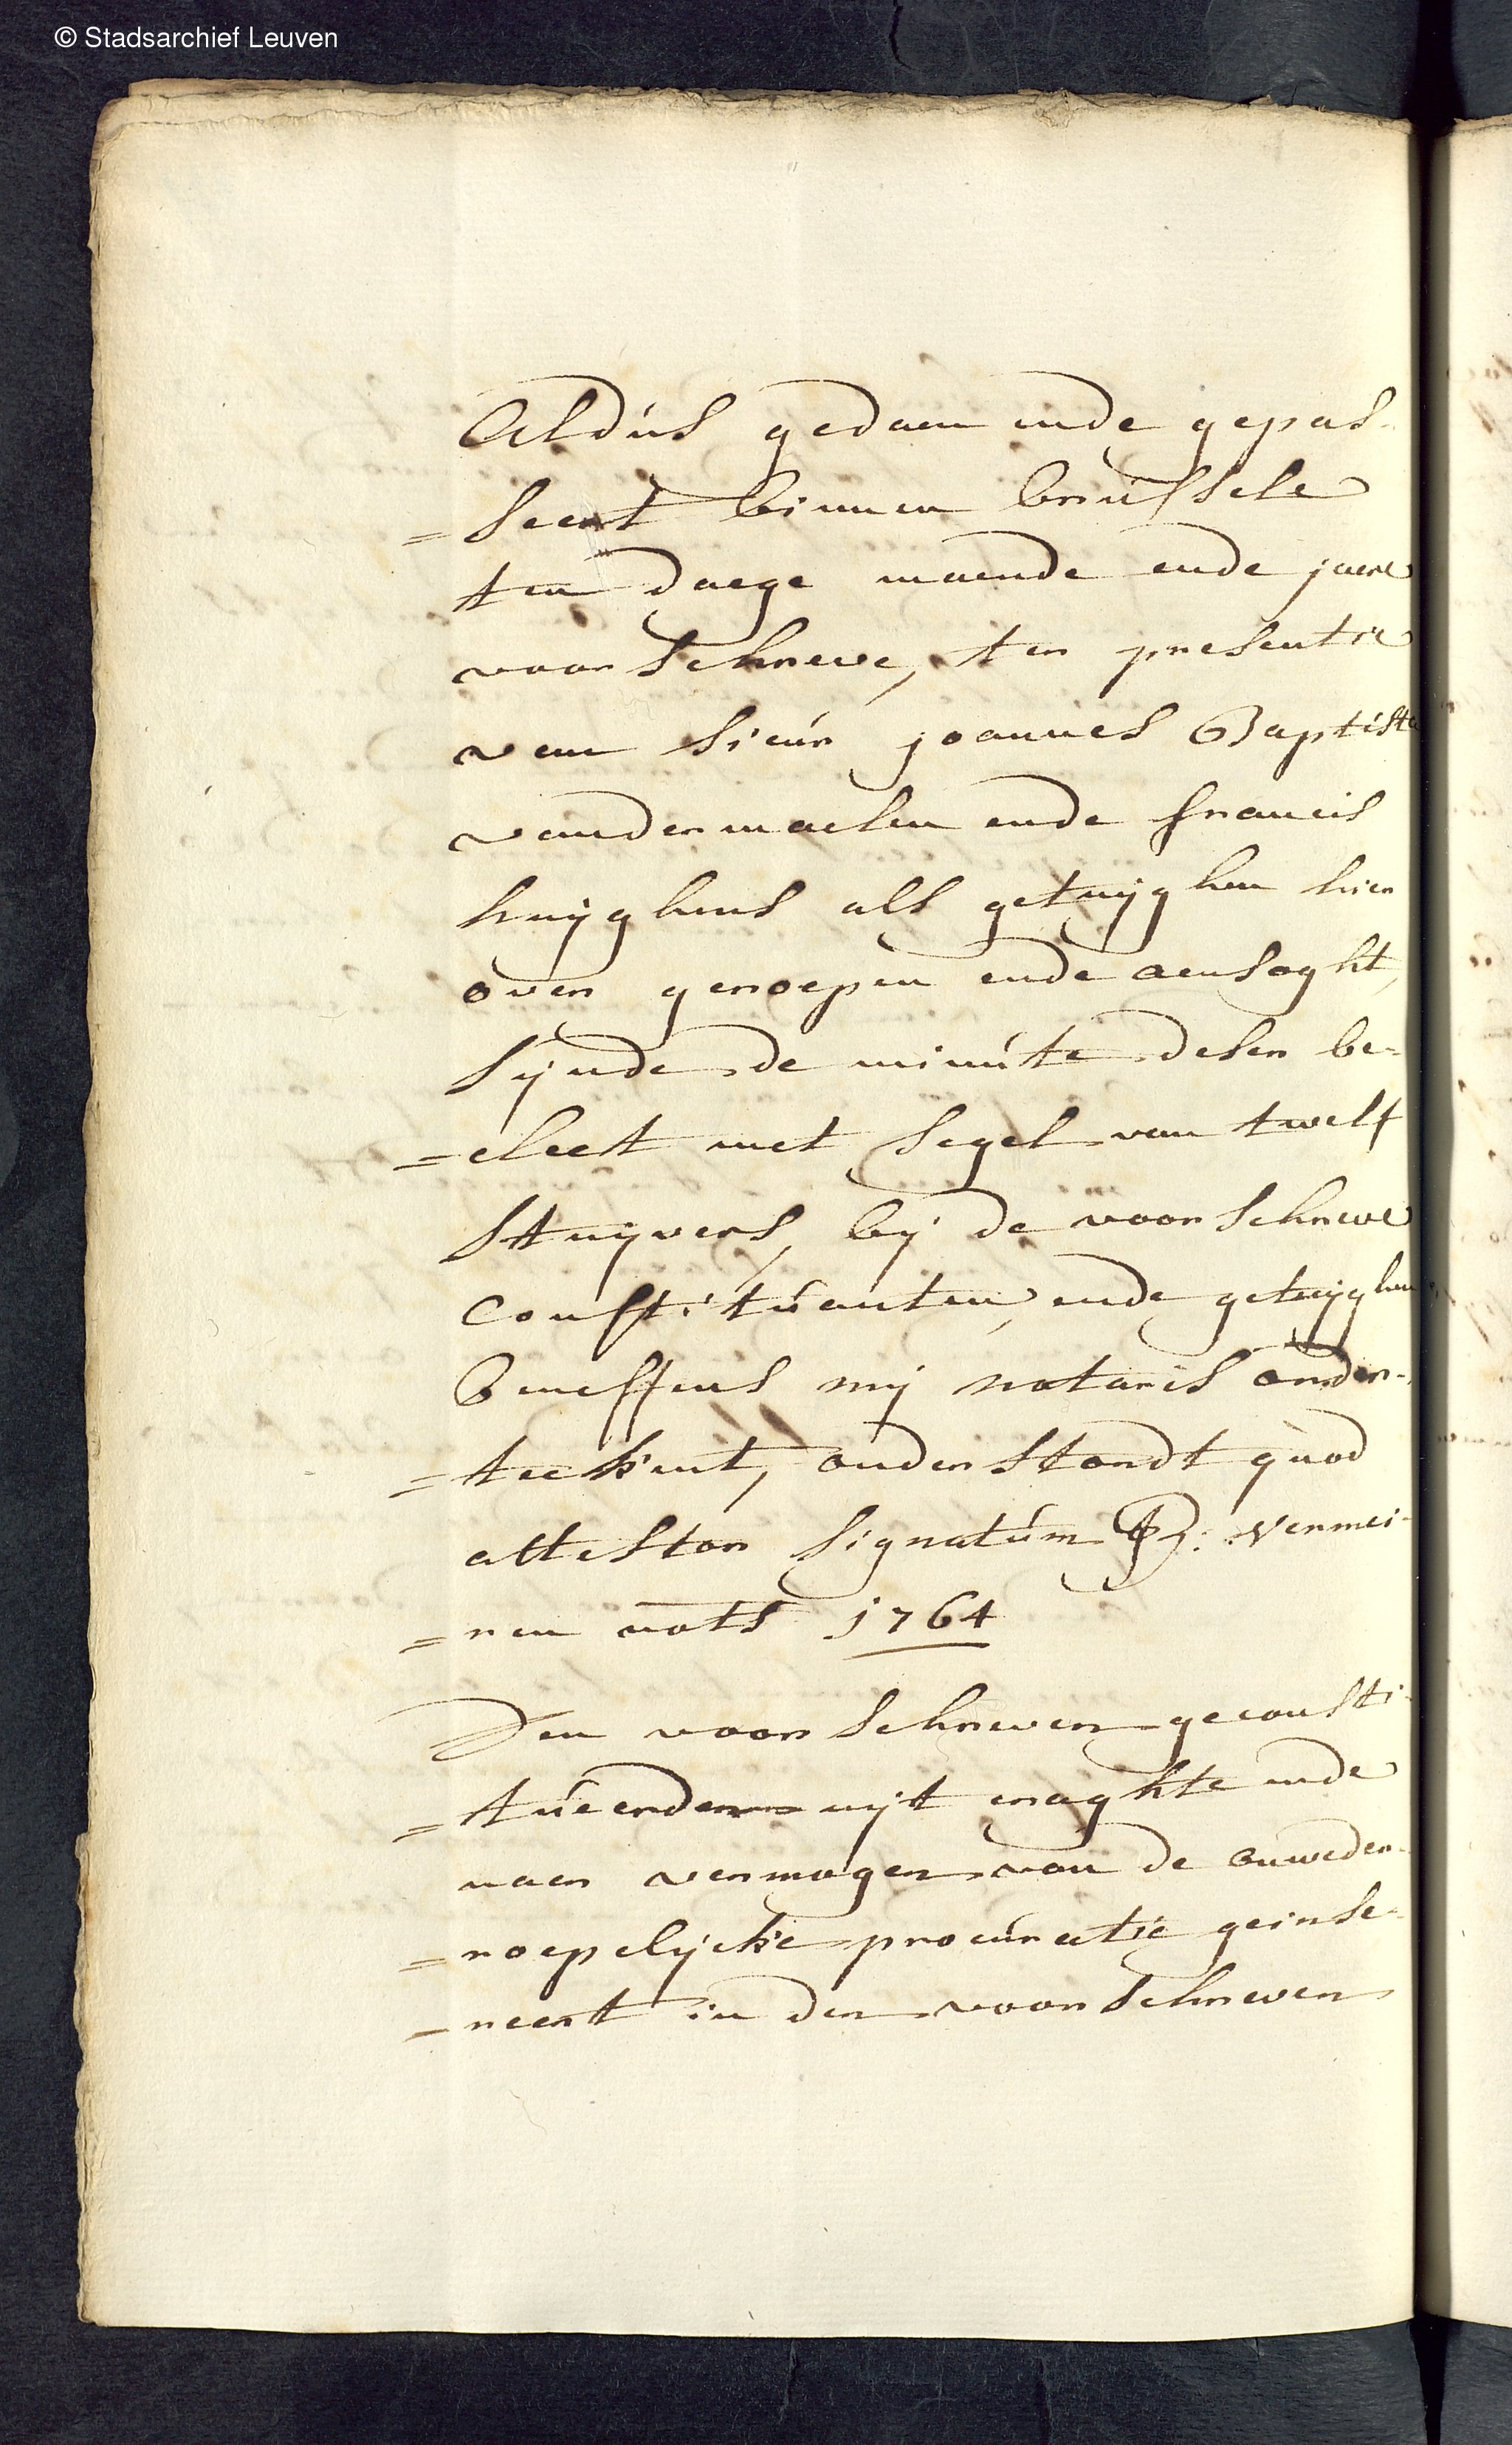 © Stadsarchief Leuven
Aldus gedaen ende gepas-
=seert binnen brussele
ten daege maende ende jaere
voorschreve, ter presentie
van sieur joannes Baptista
vandermaelen ende francis
huijghens als getuijghen hier
over geroepen ende aensoght,
sijnde de minute deser be-
=cleet met segel van twelf
stuijvers, bij de voorschreve
constituanten, ende getuijghen
beneffens mij notaris onder-
=teekent, onderstondt quod
attestor signatúm vermei-
=ren nots 1764
Den voorschreven geconsti-
=tueerden uijt craghte ende
naer vermogen van de onweder-
=roepelijcke procuratie geinse-
=reert in den voorschreven